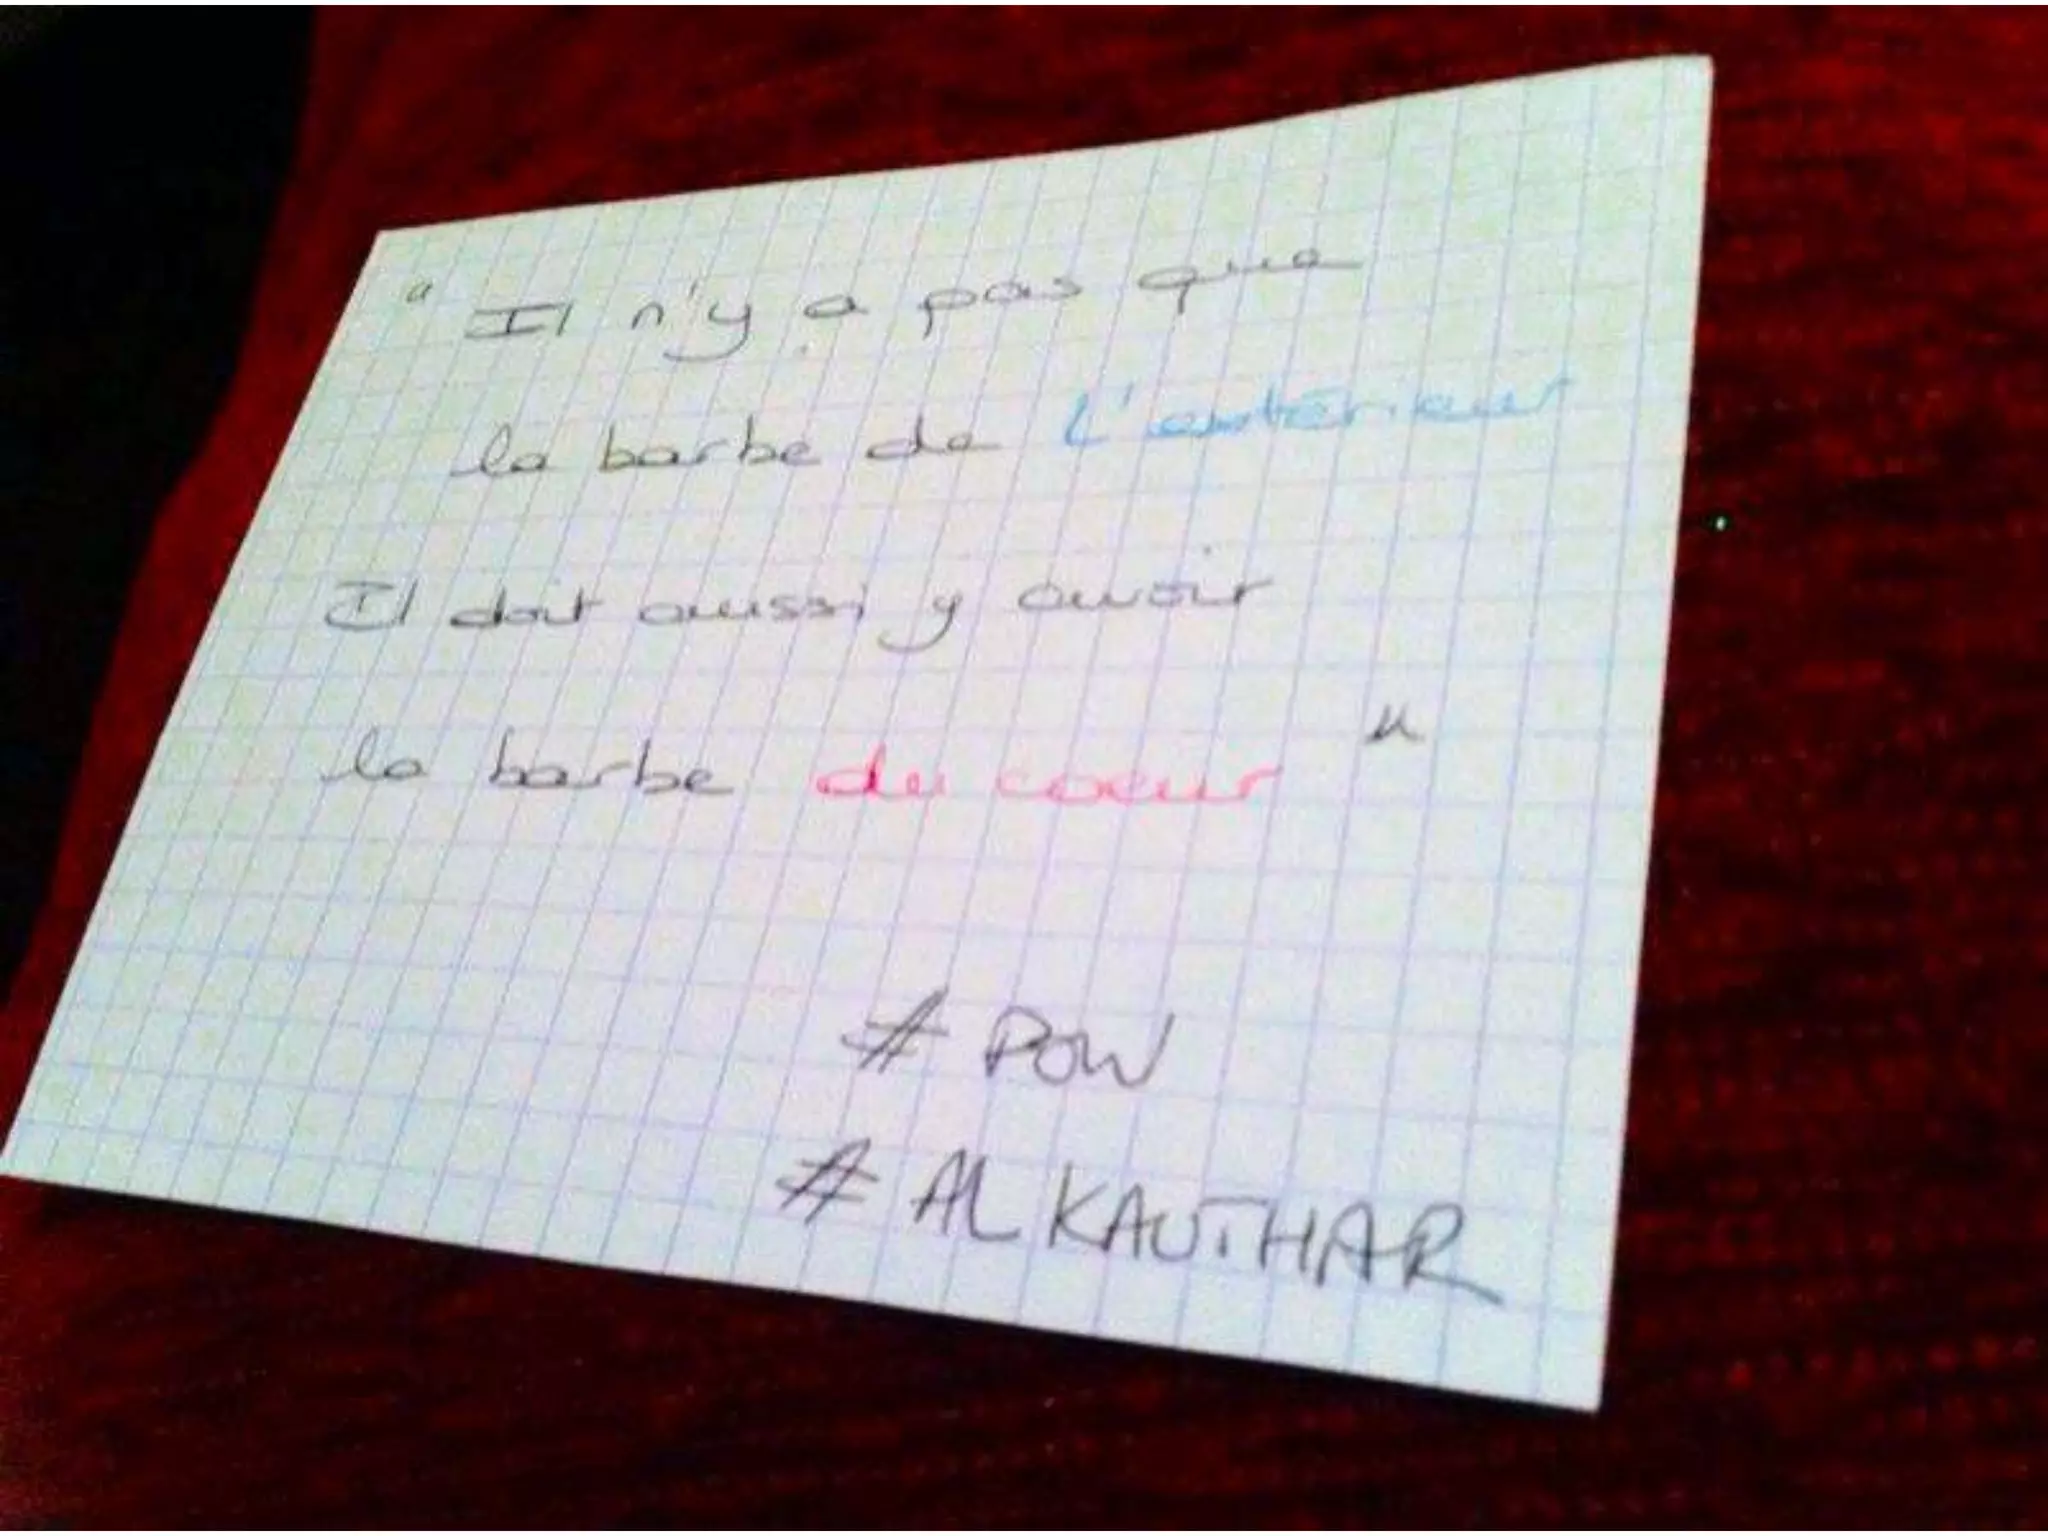 " Il n'y a pas que
la barbe de L'extérieur
Il doit aussi y avoir
la barbe du coeur "
# POW
# AL KAUTHAR